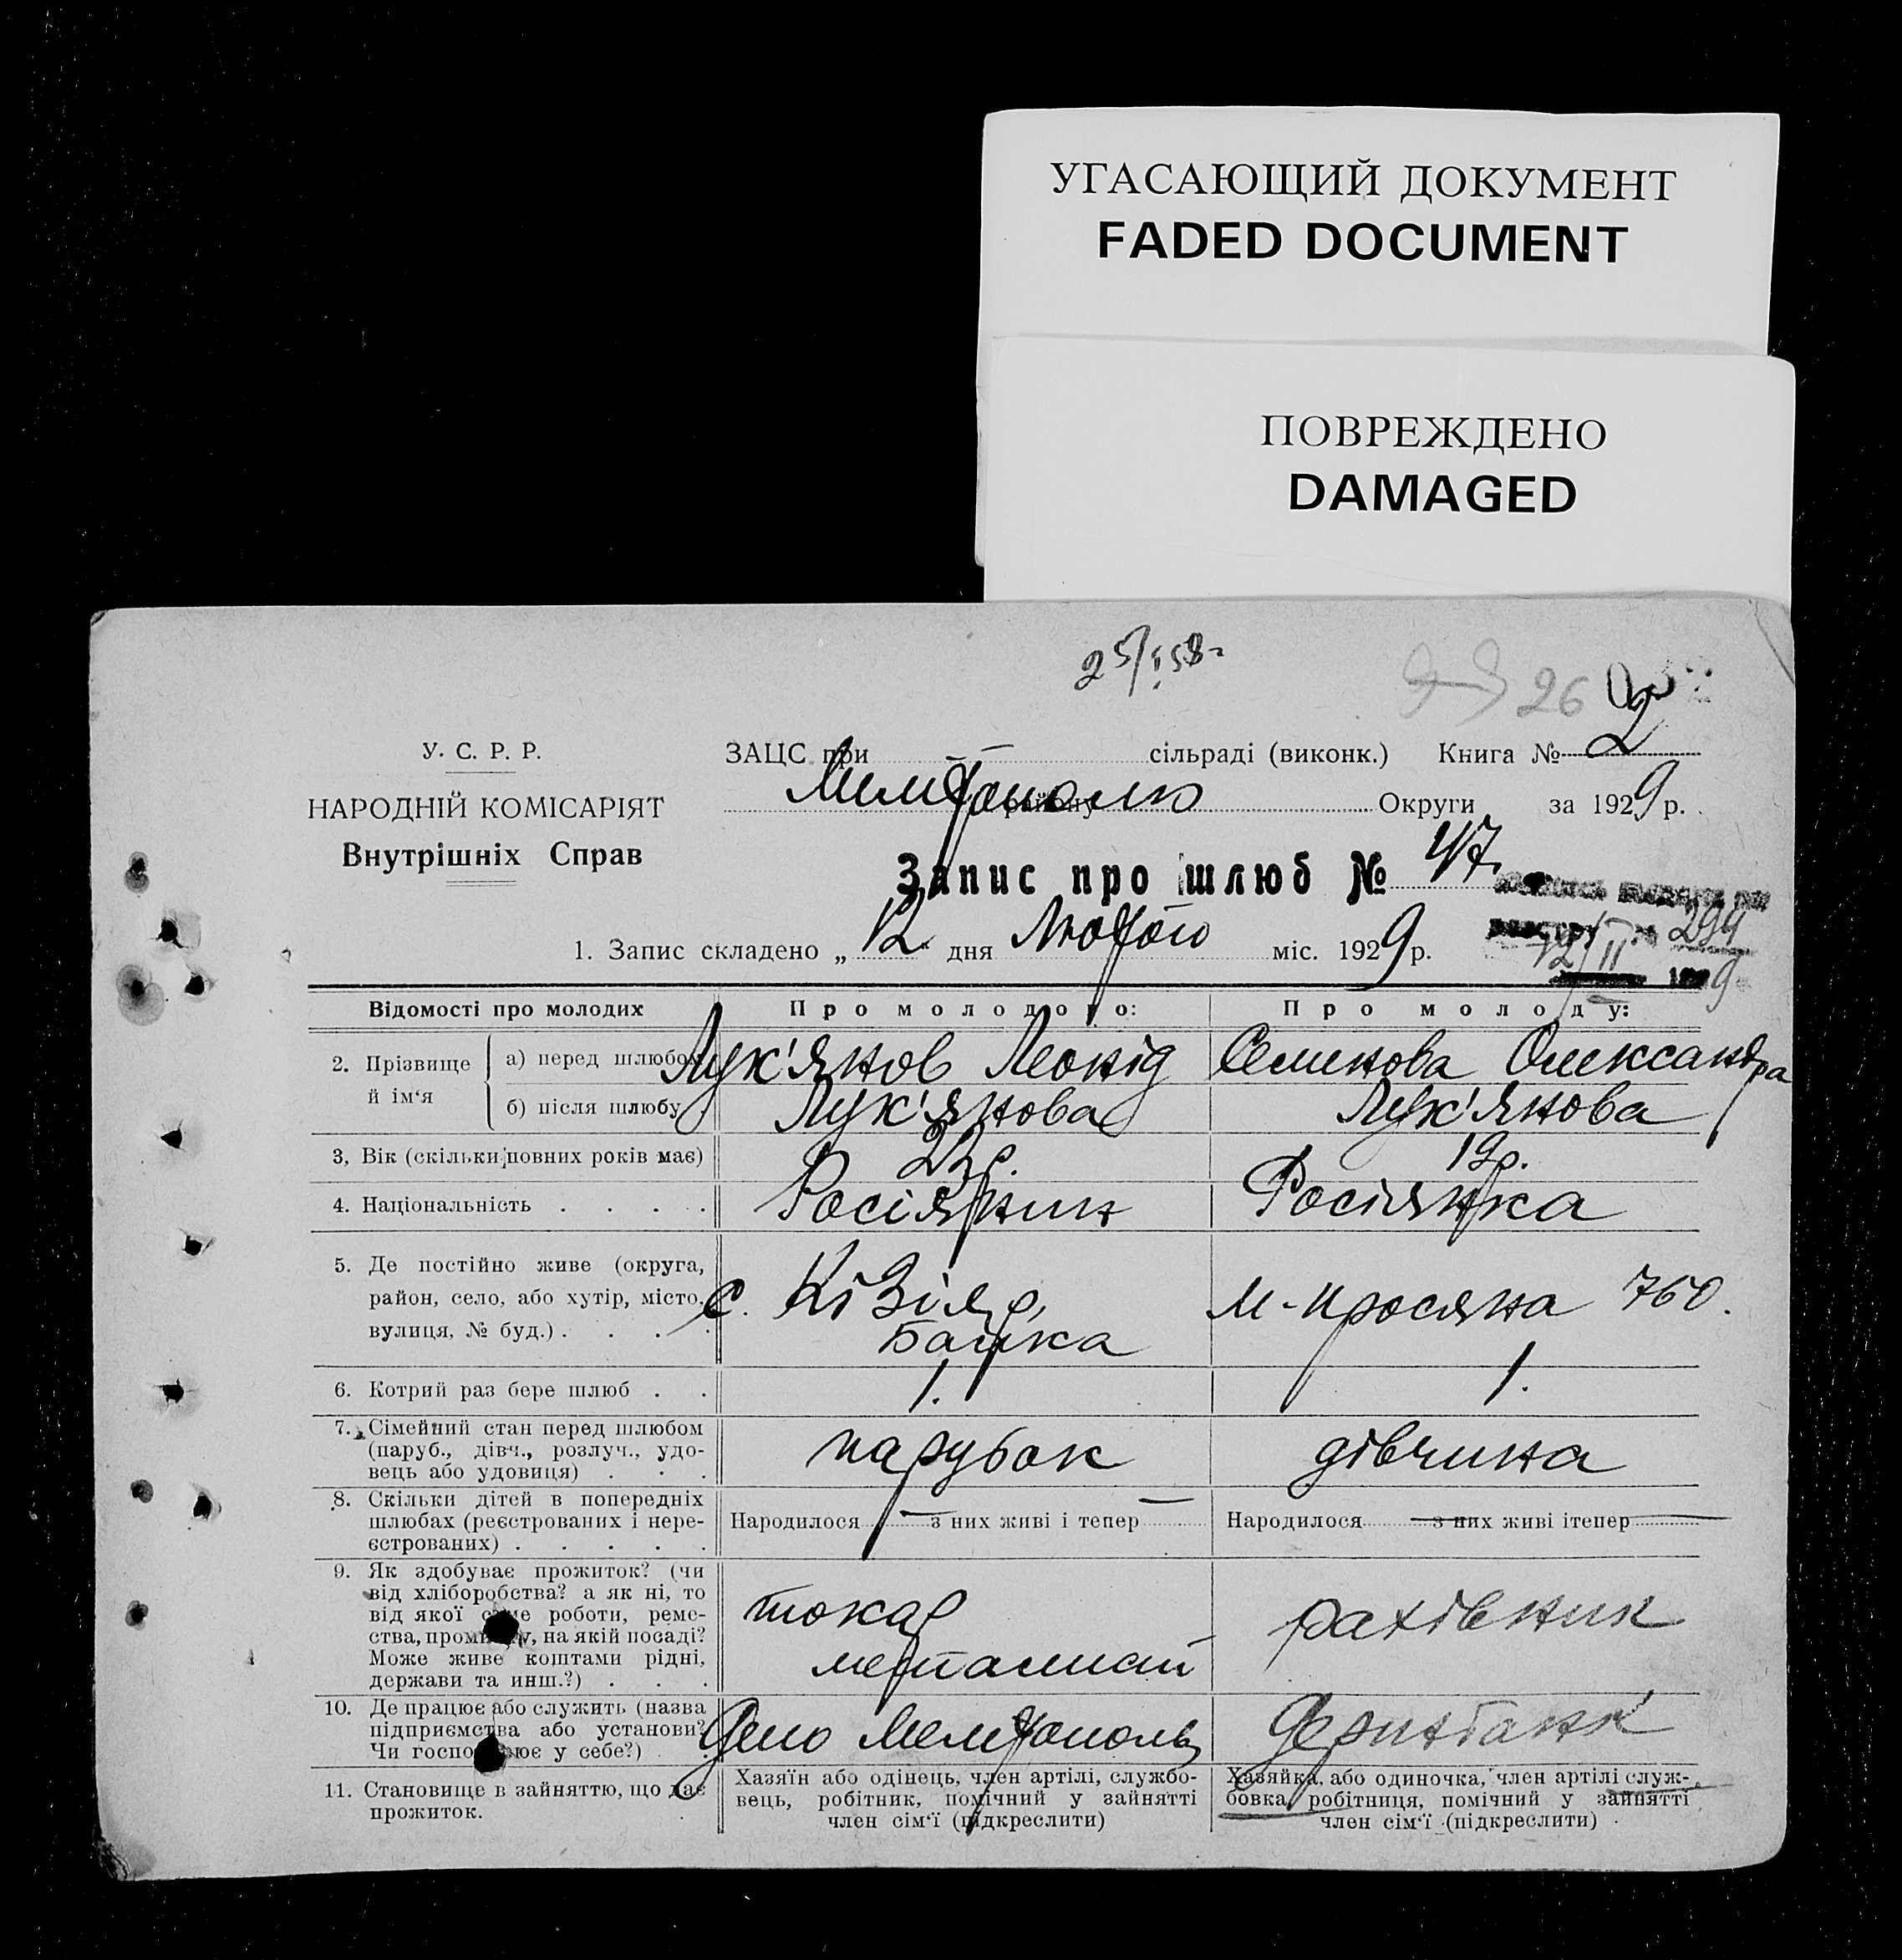 УГАСАЮЩИЙ ДОКУМЕНТ
FADED DOCUMENT
ПОВРЕЖДЕНО
DAMAGED
25/I 58 г
26
У. С. Р. Р.
НАРОДНІЙ КОМІСАРІЯТ
Внутрішніх Справ
ЗАЦС при — сільраді (виконк.) Книга № 2
Мелітополь району Округи за 1929 р.
Запис про шлюб № 47
1. Запис складено „12" дня Лютого міс. 1929 р.
294
12/II 1929
Відомості про молодих Про молодого: Про молоду:
2. Прізвище й ім'я
а) перед шлюбом Лук'янов Леонід Семенова Олександра
б) після шлюбу Лук'янова Лук'янова
3, Вік (скільки повних років має) 23 р. 19 р.
4. Національність . . . . Росіянин Росіянка
5. Де постійно живе (округа,
район, село, або хутір, місто,
вулиця, № буд.) . . . .
с. Кізіяр,
Балка
м-Просяна 760.
6. Котрий раз бере шлюб . . 1. 1.
7. Сімейний стан перед шлюбом
(паруб., дівч., розлуч., удо-
вець або удовиця) . . .
парубок дівчина
8. Скільки дітей в попередніх
шлюбах (реєстрованих і нере-
єстрованих) . . . . .
Народилося — з них живі і тепер — Народилося — з них живі ітепер —
9. Як здобуває прожиток? (чи
від хліборобства? а як ні, то
від якої саме роботи, реме-
ства, промислу, на якій посаді?
Може живе коштами рідні,
держави та инш.?) . . .
токар
металист
рахівник
10. Де працює або служить (назва
підприємства або установи?
Чи господарює у себе?) .
Депо Мелітополь
11. Становище в зайняттю, що дає
прожиток.
Хазяїн або одінець, член артілі, службо-
вець, робітник, помічний у зайнятті
член сім'ї (підкреслити)
Хазяйка, або одиночка, член артілі служ-
бовка, робітниця, помічний у зайнятті
член сім'ї (підкреслити)